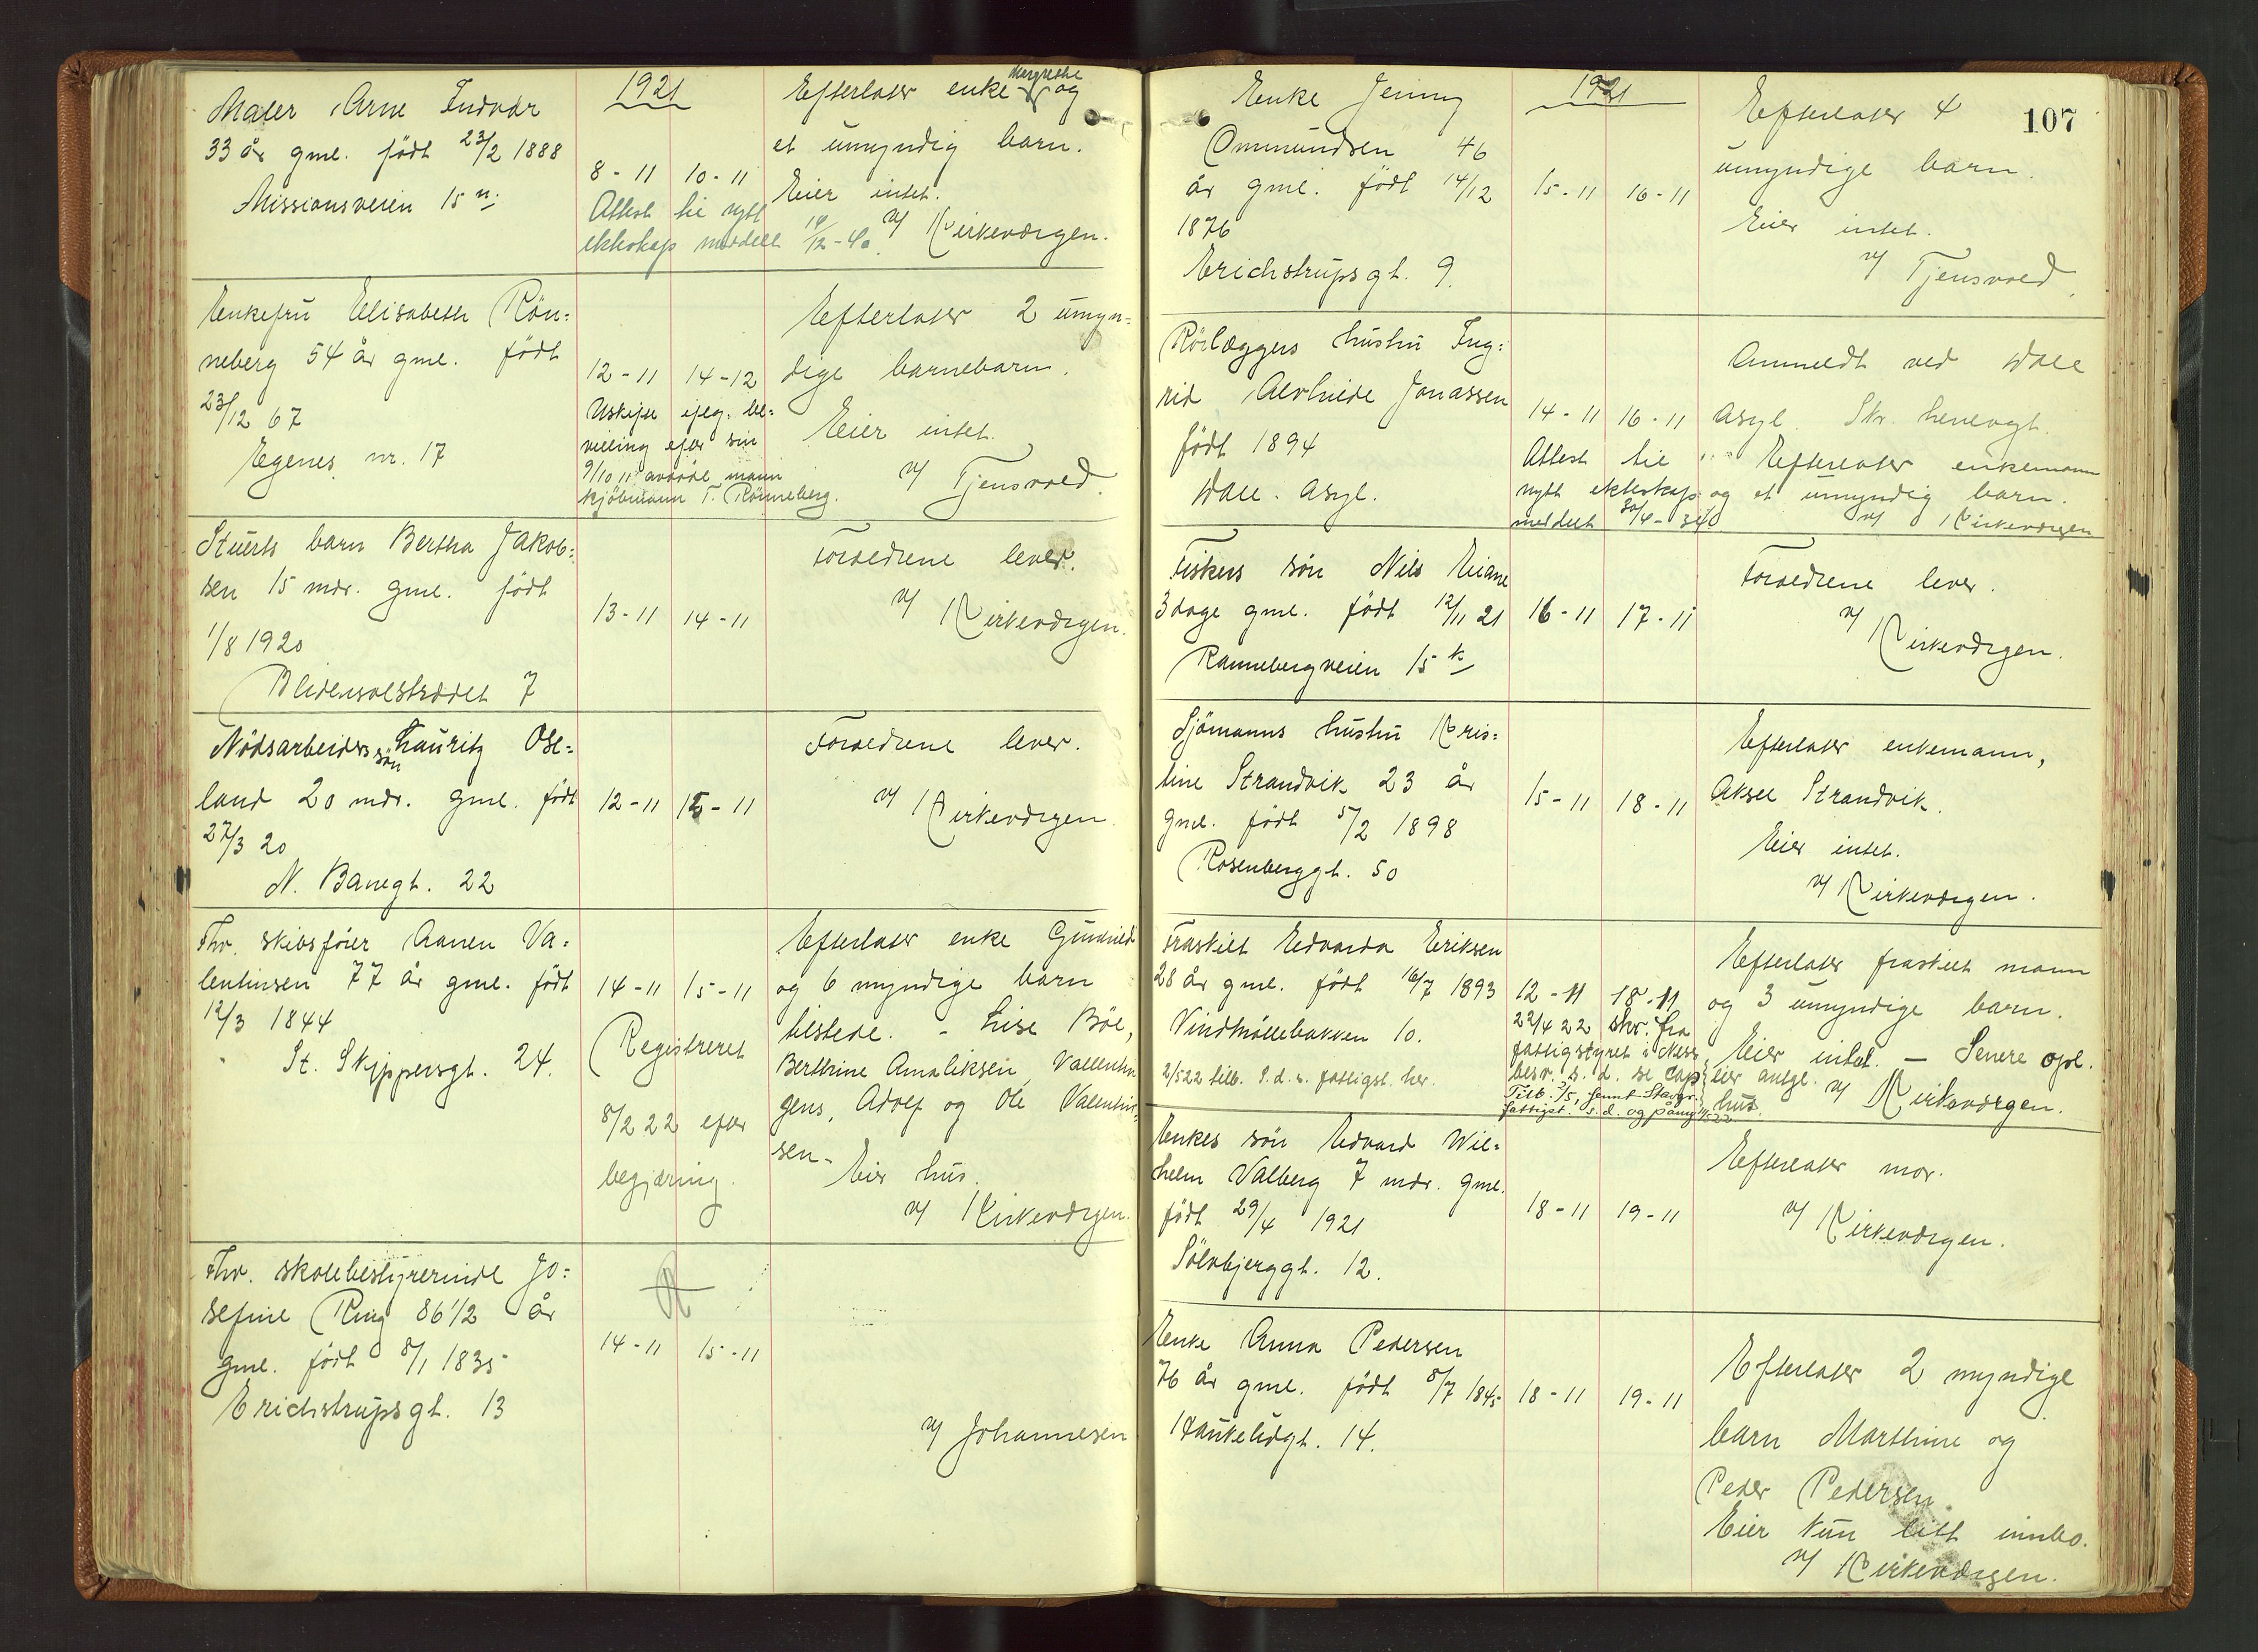 1921
Maler Arne Indvær
33 år gml. födt 23/2 1888
Missionsveien 15 n.
8-11 10-11
Attest til nytt
ekteskap meddelt 14/12-40.
Efterlater enke Margrethe og
et umyndig barn.
Eier intet.
v/ Kirkeværgen.
Enkefru Elisabeth Rön=
neberg 54 år gml. födt
23/12 67
Egenes nr. 17
12-11 14-12
Uskifte
efter sin
9/10 11 avdöde mann
kjöbmann T. Rönneberg.
Efterlater 2 umyn=
dige barnebarn.
Eier intet.
v/ Tjensvold.
Stuerts barn Bertha Jakob=
sen 15 mdr. gml. födt
1/8 1920
Blidensolstrædet 7
13-11 14-11
Forældrene lever.
v/ Kirkeværgen.
Nödsarbeiders sön Lauritz Ose=
land 20 mdr. gml. födt
27/3 20
N. Banegt. 22
12-11 15-11
Forældrene lever.
v/ Kirkeværgen.
Fhv. skibsförer Aanen Va=
lentinsen 77 år gml. födt
12/3 1844
St. Skippersgt. 24.
14-11 15-11
Registreret
8/2 22 efter
begjæring.
Efterlater enke Gunhild
og 6 myndige barn
tilstede. - Lise Böe,
Berthine Amaliksen,
Adolf og Ole Valentin=
sen-
Eier hus.
v/ Kirkeværgen.
Fhv. skolebestyrerinde Jo=
sefine Ring 86 1/2 år
gml. födt 8/1 1835
Erichstrupsgt. 13
14-11 15-11
v/ Johannesen
107
1921
Enke Jenny
Ommundsen 46
år gml. födt 14/12
1876
Erichstrupsgt. 9.
15-11 16-11
Efterlater 4
umyndige barn.
Eier intet.
v/ Tjensvold.
Rörlæggers hustru Ing=
rid Alvhilde Jonassen
födt 1894
Dale. Asyl.
14-11 16-11
Attest til
nytt ekteskap
meddelt 30/4-34
Anmeldt ved Dale
Asyl. Skr. henlagt.
Efterlater enkemann
og et umyndig barn.
v/ Kirkeværgen
Fiskers sön Nils Eiane
3 dage gml. födt 12/11 21
Rannebergveien 15 k
16-11 17-11
Forældrene lever.
v/ Kirkeværgen.
Sjömanns hustru Kris=
tine Strandvik 23 år
gml. födt 5/2 1898
Rosenberggt. 50
15-11 18-11
Efterlater enkemann,
Aksel Strandvik.
Eier intet.
v/ Kirkeværgen.
Fraskilt Edvarda Eriksen
28 år gml. födt 16/7 1893
Vindmöllebakken 10.
2/5 22 tilb. s.d. s. fattigst. her.
12-11 18-11
22/4 22 skr. fra
fattigstyret i
besv. s. d.
Tilb. 2/5, sennt Stavgr.
fattigst. s.d. og
Efterlater fraskilt mann
og 3 umyndige barn.
Eier intet. - Senere opl.
eier antgl.
hus. v/ Kirkeværgen.
Enkes sön Edvard Wil=
helm Valberg 7 mdr. gml.
födt 29/4 1921
Sölvbjerggt. 12.
18-11 19-11
Efterlater mor.
v/ Kirkeværgen.
Enke Anna Pedersen
76 år gml. födt 8/7 1845
Haukeligt. 14.
18-11 19-11
Efterlater 2 myndige
barn Marthine og
Peder Pedersen.
Eier kun litt innbo.
v/ Kirkeværgen.